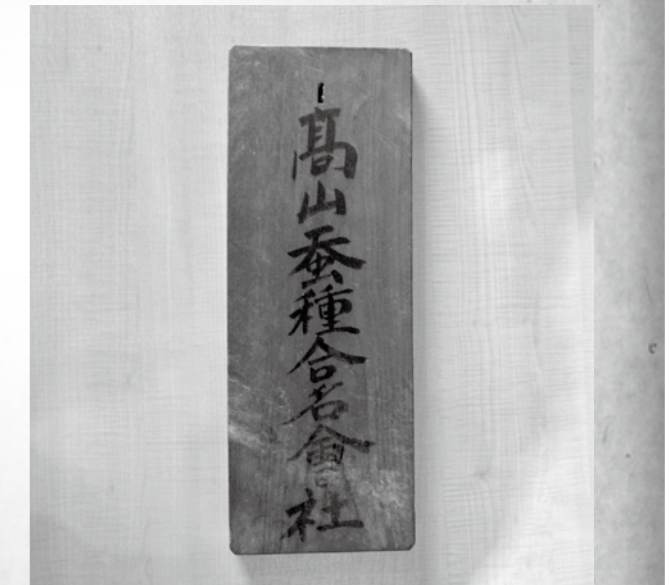 髙山蚕種合名會社